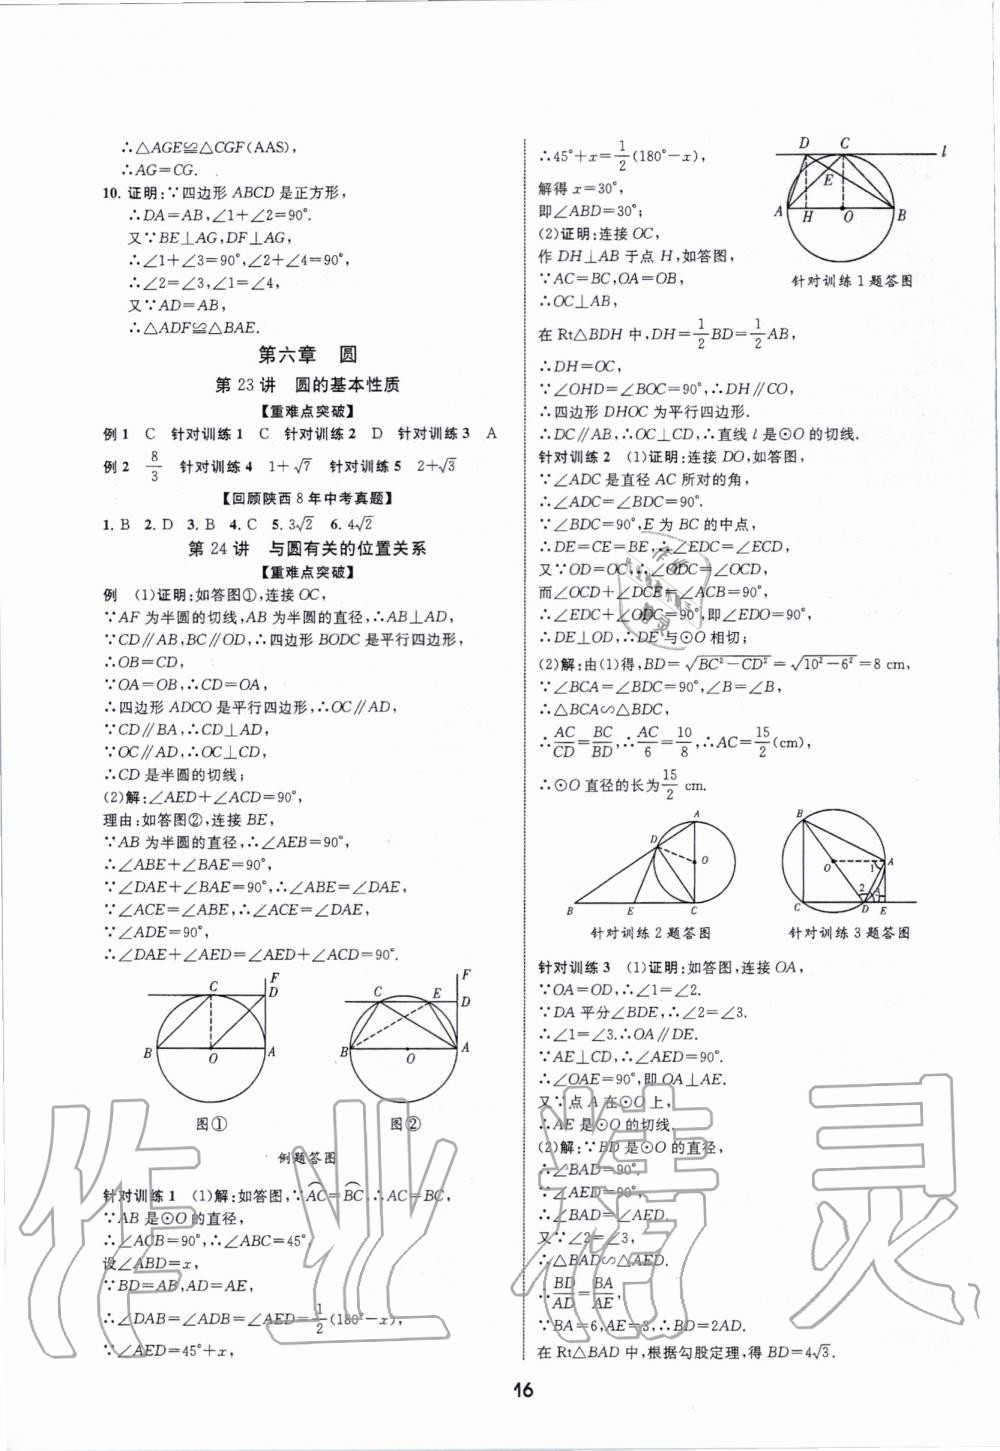 ∴△AGE≌△CGF(AAS),
∴AG=CG.
10. 证明:∵四边形 ABCD 是正方形,
∴DA=AB,∠1+∠2=90°.
又∵BE⊥AG,DF⊥AG,
∴∠1+∠3=90°,∠2+∠4=90°.
∴∠2=∠3,∠1=∠4,
又∵AD=AB,
∴△ADF≌△BAE.
第六章 圆
第 23 讲 圆的基本性质
【重难点突破】
例 1 C 针对训练 1 C 针对训练 2 D 针对训练 3 A
例 2 8/3 针对训练 4 1+√7 针对训练 5 2+√3
【回顾陕西 8 年中考真题】
1. B 2. D 3. B 4. C 5. 3√2 6. 4√2
第 24 讲 与圆有关的位置关系
【重难点突破】
例 (1)证明:如答图①,连接 OC,
∵AF 为半圆的切线,AB 为半圆的直径,∴AB⊥AD,
∵CD∥AB,BC∥OD,∴四边形 BODC 是平行四边形,
∴OB=CD,
∵OA=OB,∴CD=OA,
∴四边形 ADCO 是平行四边形,∴OC∥AD,
∵CD∥BA,∴CD⊥AD,
∵OC∥AD,∴OC⊥CD,
∴CD 是半圆的切线;
(2)解:∠AED+∠ACD=90°,
理由:如答图②,连接 BE,
∵AB 为半圆的直径,∴∠AEB=90°,
∴∠ABE+∠BAE=90°,
∵∠DAE+∠BAE=90°,∴∠ABE=∠DAE,
∵∠ACE=∠ABE,∴∠ACE=∠DAE,
∵∠ADE=90°,
∴∠DAE+∠AED=∠AED+∠ACD=90°.
F
C D
B O A
图①
F
C E D
B O A
图②
例题答图
针对训练 1 (1)解:如答图,∵AC⌒=BC⌒,∴AC=BC,
∵AB 是⊙O 的直径,
∴∠ACB=90°,∴∠ABC=45°,
设∠ABD=x,
∵BD=AB,AD=AE,
∴∠DAB=∠ADB=∠AED=1/2(180°-x),
∵∠AED=45°+x,
∴45°+x=1/2(180°-x),
解得 x=30°,
即∠ABD=30°;
(2)证明:连接 OC,
作 DH⊥AB 于点 H,如答图,
∵AC=BC,OA=OB,
∴OC⊥AB,
D C l
E
A H O B
针对训练 1 题答图
在 Rt△BDH 中,DH=1/2BD=1/2AB,
∴DH=OC,
∵∠OHD=∠BOC=90°,∴DH∥CO,
∴四边形 DHOC 为平行四边形.
∴DC∥AB,∴OC⊥CD,∴直线 l 是⊙O 的切线.
针对训练 2 (1)证明:连接 DO,如答图,
∵∠ADC 是直径 AC 所对的角,
∴∠ADC=∠BDC=90°.
∵∠BDC=90°,E 为 BC 的中点,
∴DE=CE=BE,∴∠EDC=∠ECD,
又∵OD=OC,∴∠ODC=∠OCD,
而∠OCD+∠DCE=∠ACB=90°,
∴∠EDC+∠ODC=90°,即∠EDO=90°,
∴DE⊥OD,∴DE 与⊙O 相切;
(2)解:由(1)得,BD=√(BC²-CD²)=√(10²-6²)=8 cm,
∵∠BCA=∠BDC=90°,∠B=∠B,
∴△BCA∽△BDC,
∴AC/CD=BC/BD,∴AC/6=10/8,∴AC=15/2(cm),
∴⊙O 直径的长为15/2 cm.
A
D O
B E C
针对训练 2 题答图
B
O 1 A
2
C D E
针对训练 3 题答图
针对训练 3 (1)证明:如答图,连接 OA,
∵OA=OD,∴∠1=∠2.
∵DA 平分∠BDE,∴∠2=∠3.
∴∠1=∠3.∴OA∥DE.
∵AE⊥CD,∴∠AED=90°.
∴∠OAE=90°,即 OA⊥AE.
又∵点 A 在⊙O 上,
∴AE 是⊙O 的切线.
(2)解:∵BD 是⊙O 的直径,
∴∠BAD=90°.
∵∠AED=90°,
∴∠BAD=∠AED.
又∵∠2=∠3,
∴△BAD∽△AED.
∴BD/AD=BA/AE,
∵BA=6,AE=3,∴BD=2AD.
在 Rt△BAD 中,根据勾股定理,得 BD=4√3.
16
作业精灵